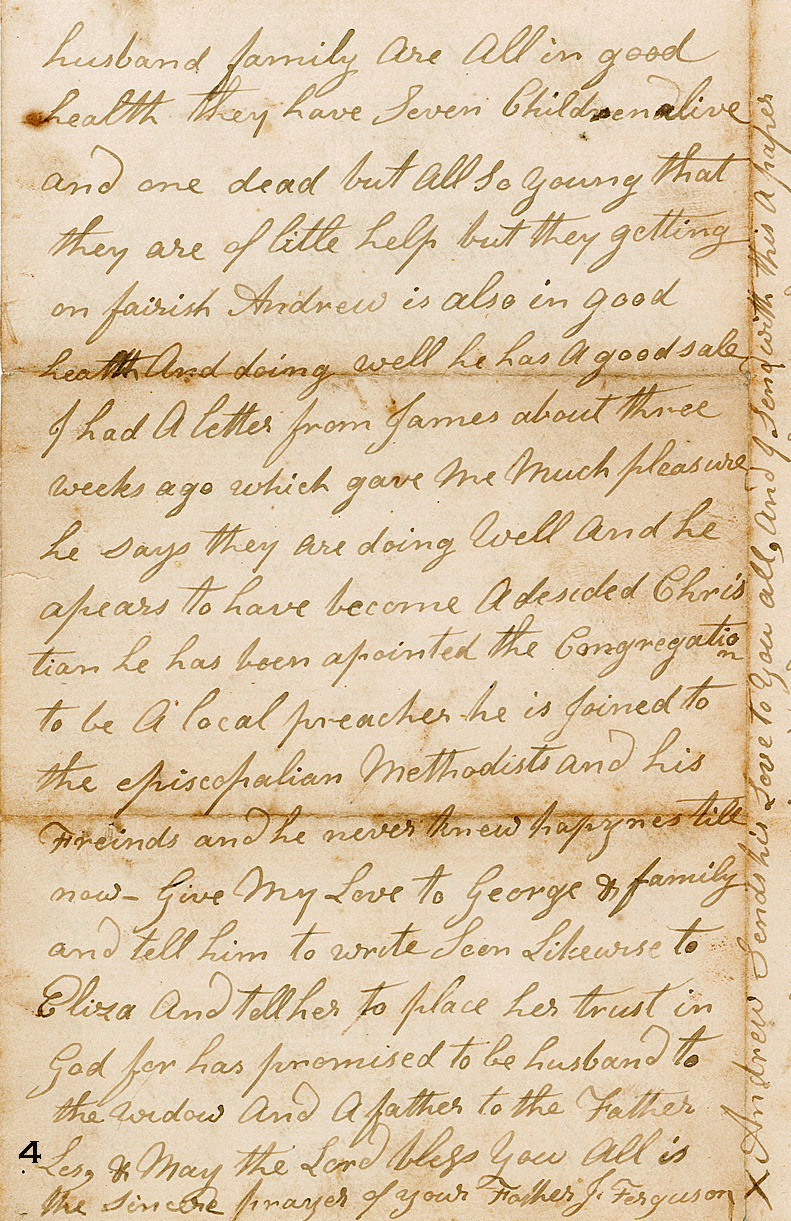 husband family Are All in good
health they have Seven Children alive
and one dead but All So young that
they are of little help but they getting
on fairish Andrew is also in good
health And doing well he has A good sale
I had A letter from James about three
weeks ago which gave Me Much pleasure
he says they are doing Well And he
apears to have become A desided Chris
tian he has been apointed the Congregatio
n
to be A local preacher he is Joined to
the episcopalian Methodists and his
Freinds and he never knew hapynes till
now - Give My Love to George & family
and tell him to write Soon Likewise to
Eliza And tell her to place her trust in
God for has promised to be husband to
the widow And A father to the Father
Les, & May the Lord bless You All is
the sincere prayer of your Father J. Ferguson
4
X Andrew Sends his Love to You all, And I Send with this A paper